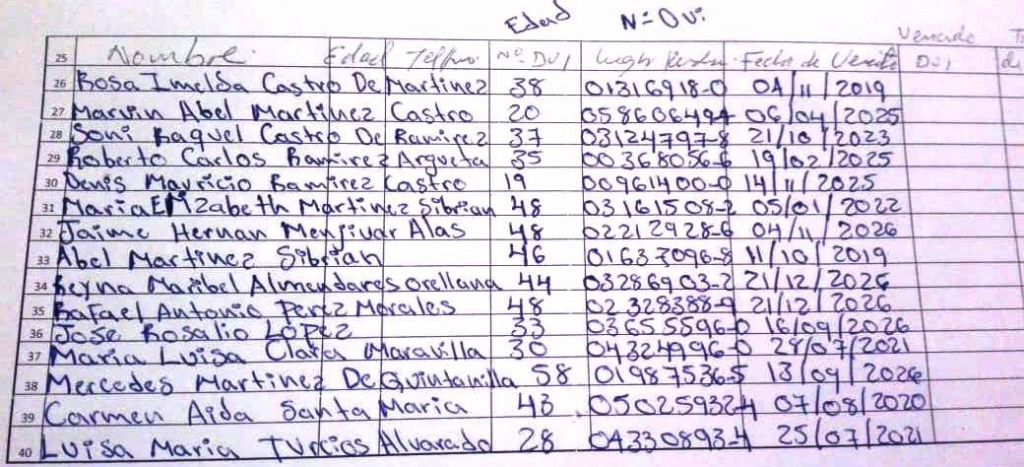 Edad Nº Dui
Vencido
25 Nombre Edad Telfno Nº DUI Lugar Fecha de Vencito DUI
26 Rosa Imelda Castro De Martinez 38 01316918-0 04/11/2019
27 Marvin Abel Martinez Castro 20 058606494 06/04/2025
28 Soni Raquel Castro De Ramirez 37 03124797-8 21/10/2023
29 Roberto Carlos Ramirez Argueta 35 00368056-6 19/02/2025
30 Denis Mauricio Ramirez Castro 19 00961400-0 14/11/2025
31 Maria ElIzabeth Martinez Sibrian 48 03161508-2 05/01/2022
32 Jaime Hernan Menjivar Alas 48 02212928-6 04/11/2026
33 Abel Martinez Sibrian 46 01637096-8 11/10/2019
34 Reyna Maribel Almendares orellana 44 03286903-2 21/12/2026
35 Rafael Antonio Perez Morales 48 02328388-9 21/12/2026
36 Jose Rosalio LOPEZ 33 03655596-0 16/09/2026
37 Maria Luisa Clara Maravilla 30 04324996-0 28/07/2021
38 Mercedes Martinez De Quintanilla 58 01987536-5 13/09/2026
39 Carmen Aida Santa Maria 43 05025932-4 07/08/2020
40 Luisa Maria Turcios Alvarado 28 04330893-4 25/07/2021